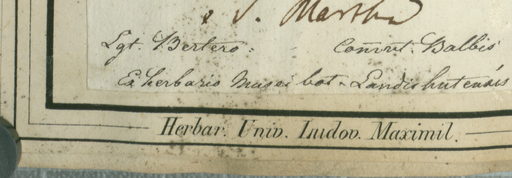 & S. Martha
Lgt. Bertero. Comm. Balbis
Ex herbario Musei bot. Landishutensis
Herbar. Univ. Ludov. Maximil.